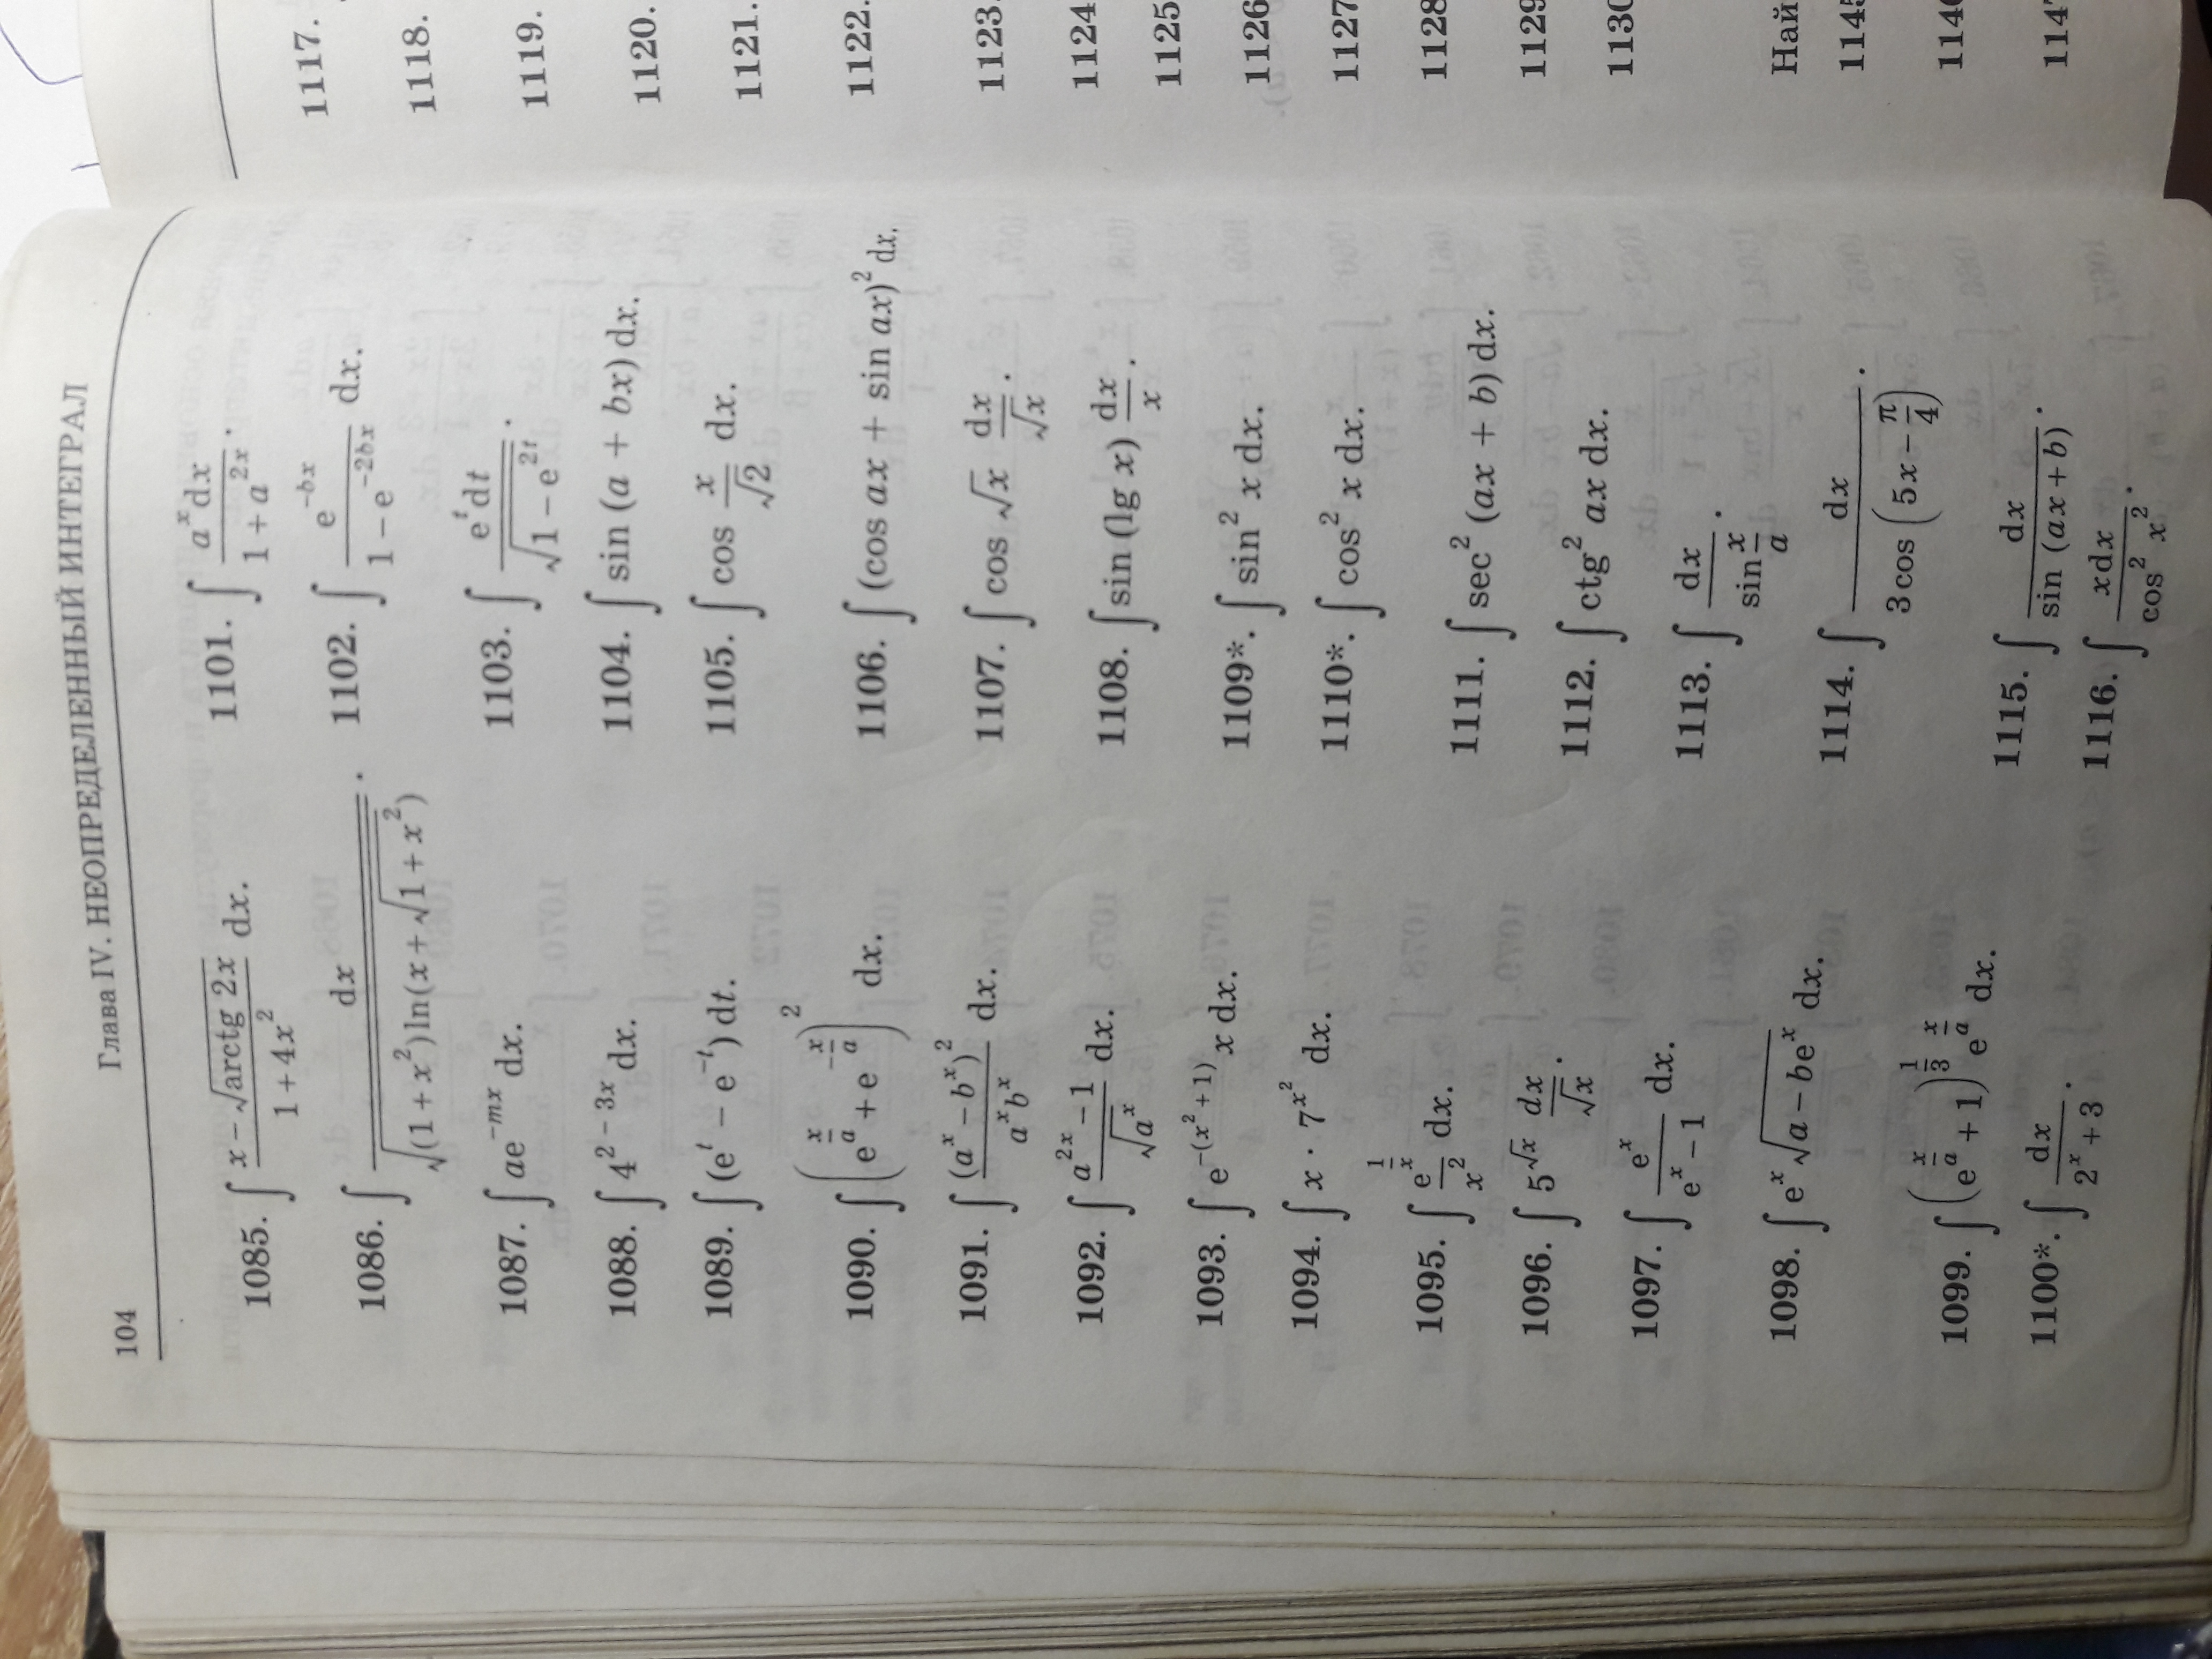 104
Глава IV. НЕОПРЕДЕЛЕННЫЙ ИНТЕГРАЛ
1085. ∫ (x − √(arctg 2x))/(1 + 4x²) dx.
1086. ∫ dx/√((1 + x²) ln(x + √(1 + x²))).
1087. ∫ ae^(−mx) dx.
1088. ∫ 4^(2 − 3x) dx.
1089. ∫ (e^t − e^(−t)) dt.
1090. ∫ (e^(x/a) + e^(−x/a))² dx.
1091. ∫ (a^x − b^x)²/(a^x b^x) dx.
1092. ∫ (a^(2x) − 1)/√(a^x) dx.
1093. ∫ e^(−(x² + 1)) x dx.
1094. ∫ x · 7^(x²) dx.
1095. ∫ e^(1/x)/x² dx.
1096. ∫ 5^(√x) dx/√x.
1097. ∫ e^x/(e^x − 1) dx.
1098. ∫ e^x √(a − be^x) dx.
1099. ∫ (e^(x/a) + 1)^(1/3) e^(x/a) dx.
1100*. ∫ dx/(2^x + 3).
1101. ∫ a^x dx/(1 + a^(2x)).
1102. ∫ e^(−bx)/(1 − e^(−2bx)) dx.
1103. ∫ e^t dt/√(1 − e^(2t)).
1104. ∫ sin (a + bx) dx.
1105. ∫ cos x/√2 dx.
1106. ∫ (cos ax + sin ax)² dx.
1107. ∫ cos √x dx/√x.
1108. ∫ sin (lg x) dx/x.
1109*. ∫ sin² x dx.
1110*. ∫ cos² x dx.
1111. ∫ sec² (ax + b) dx.
1112. ∫ ctg² ax dx.
1113. ∫ dx/(sin x/a).
1114. ∫ dx/(3 cos (5x − π/4)).
1115. ∫ dx/(sin (ax + b)).
1116. ∫ x dx/(cos² x²).
1117.
1118.
1119.
1120.
1121.
1122.
1123.
1124
1125
1126
1127
1128
1129
1130
Най
1145
1146
1147